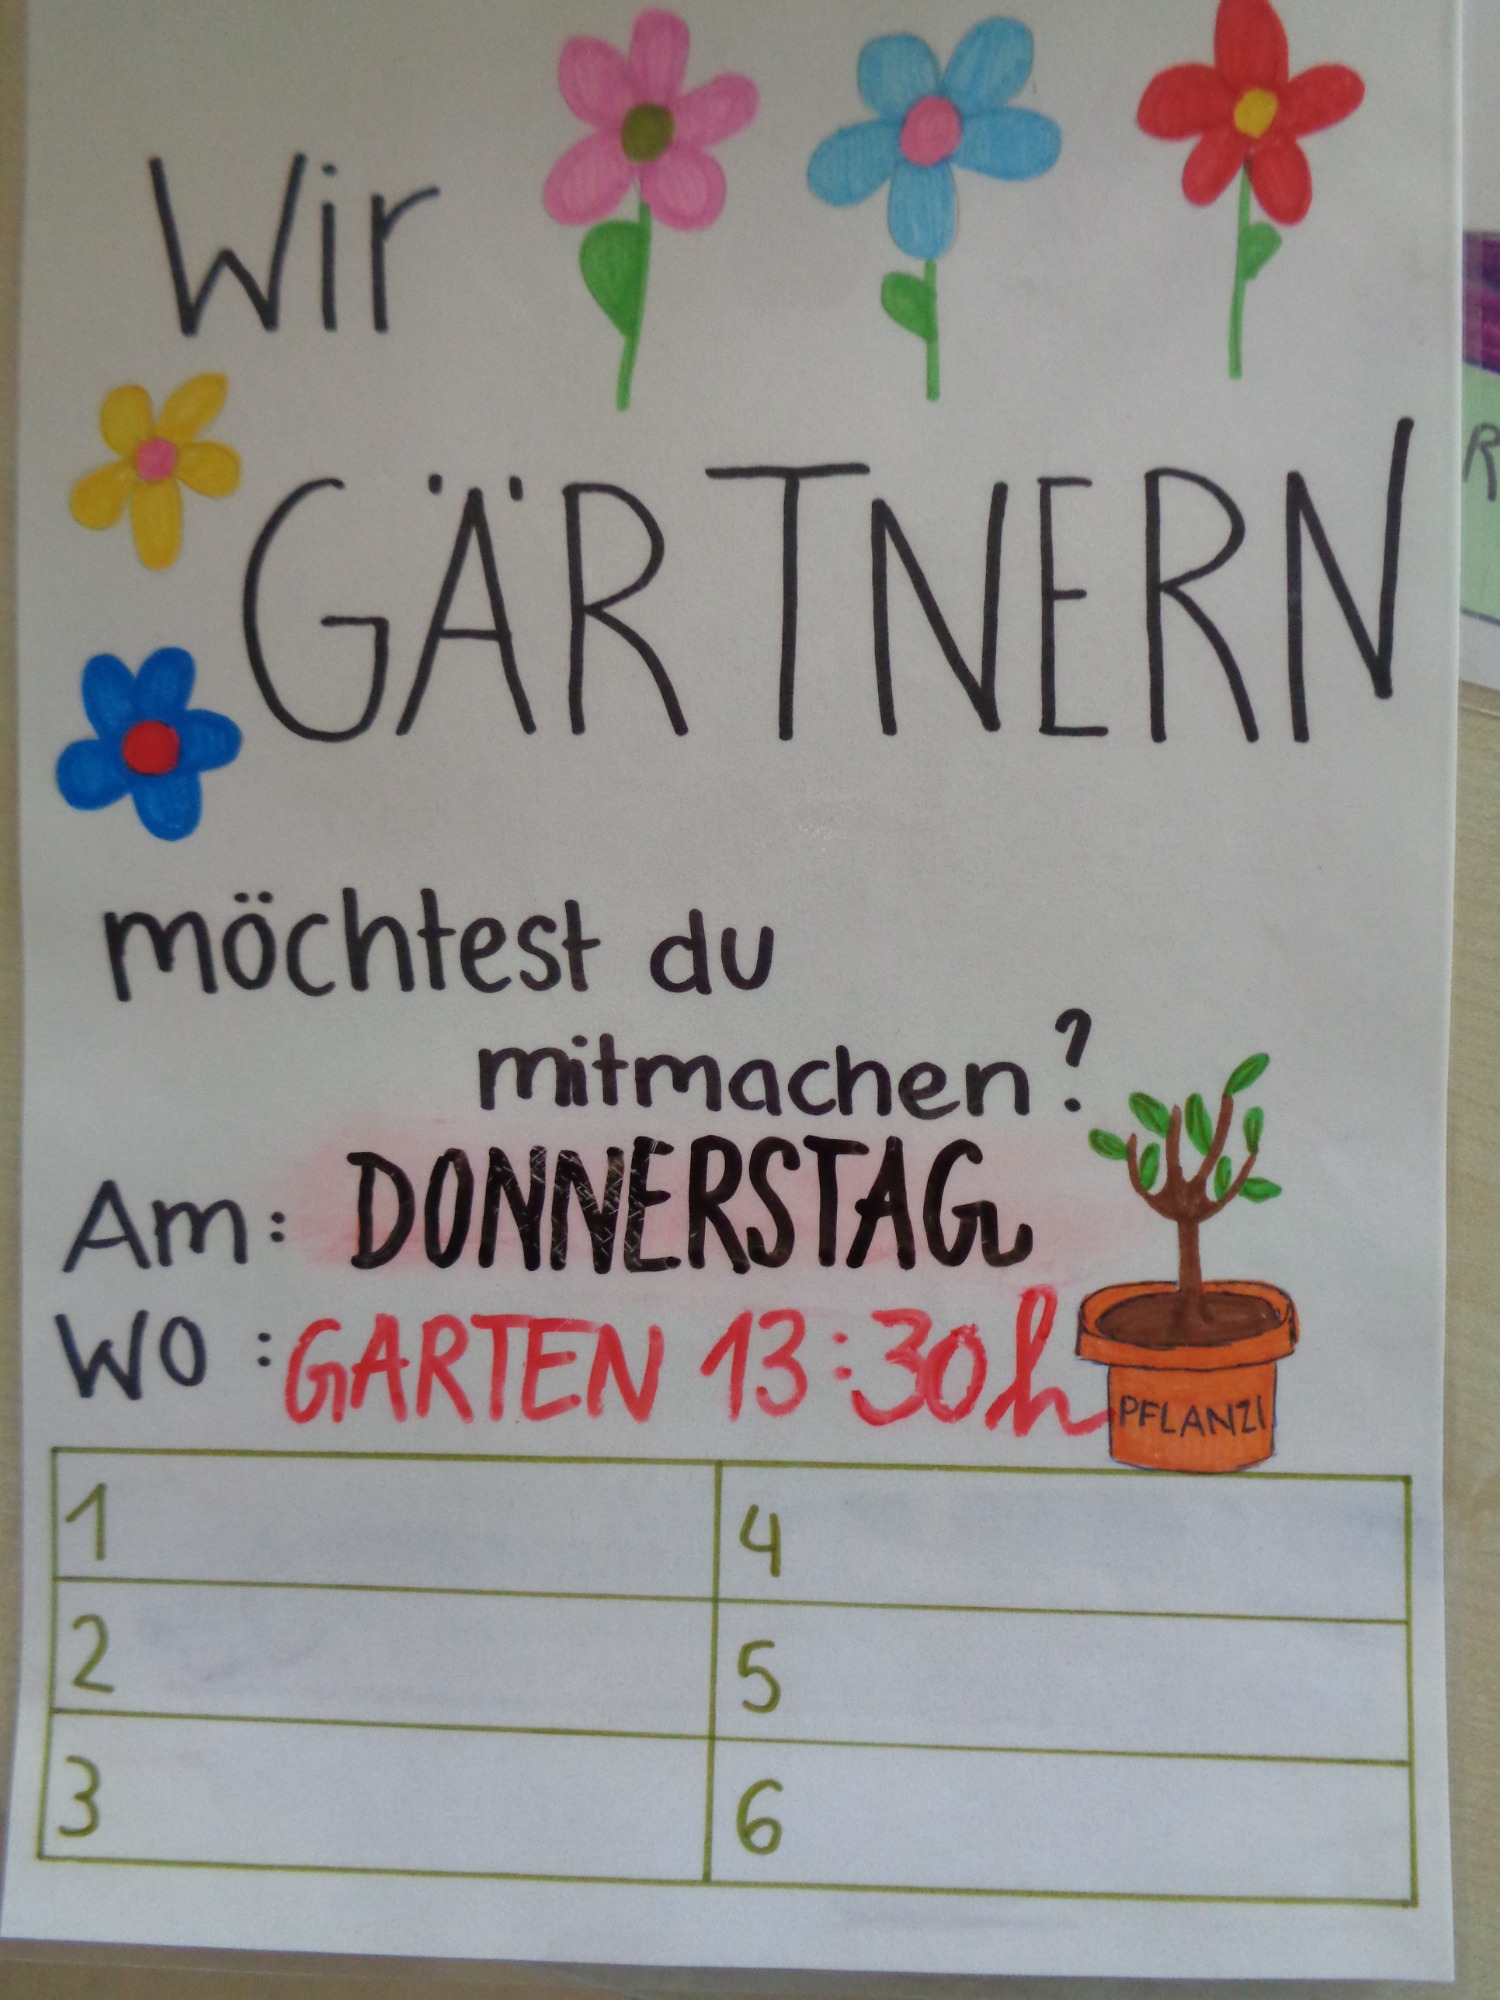 Wir
GÄRTNERN
möchtest du
mitmachen?
Am: DONNERSTAG
WO : GARTEN 13:30h
PFLANZI
1
4
2
5
3
6